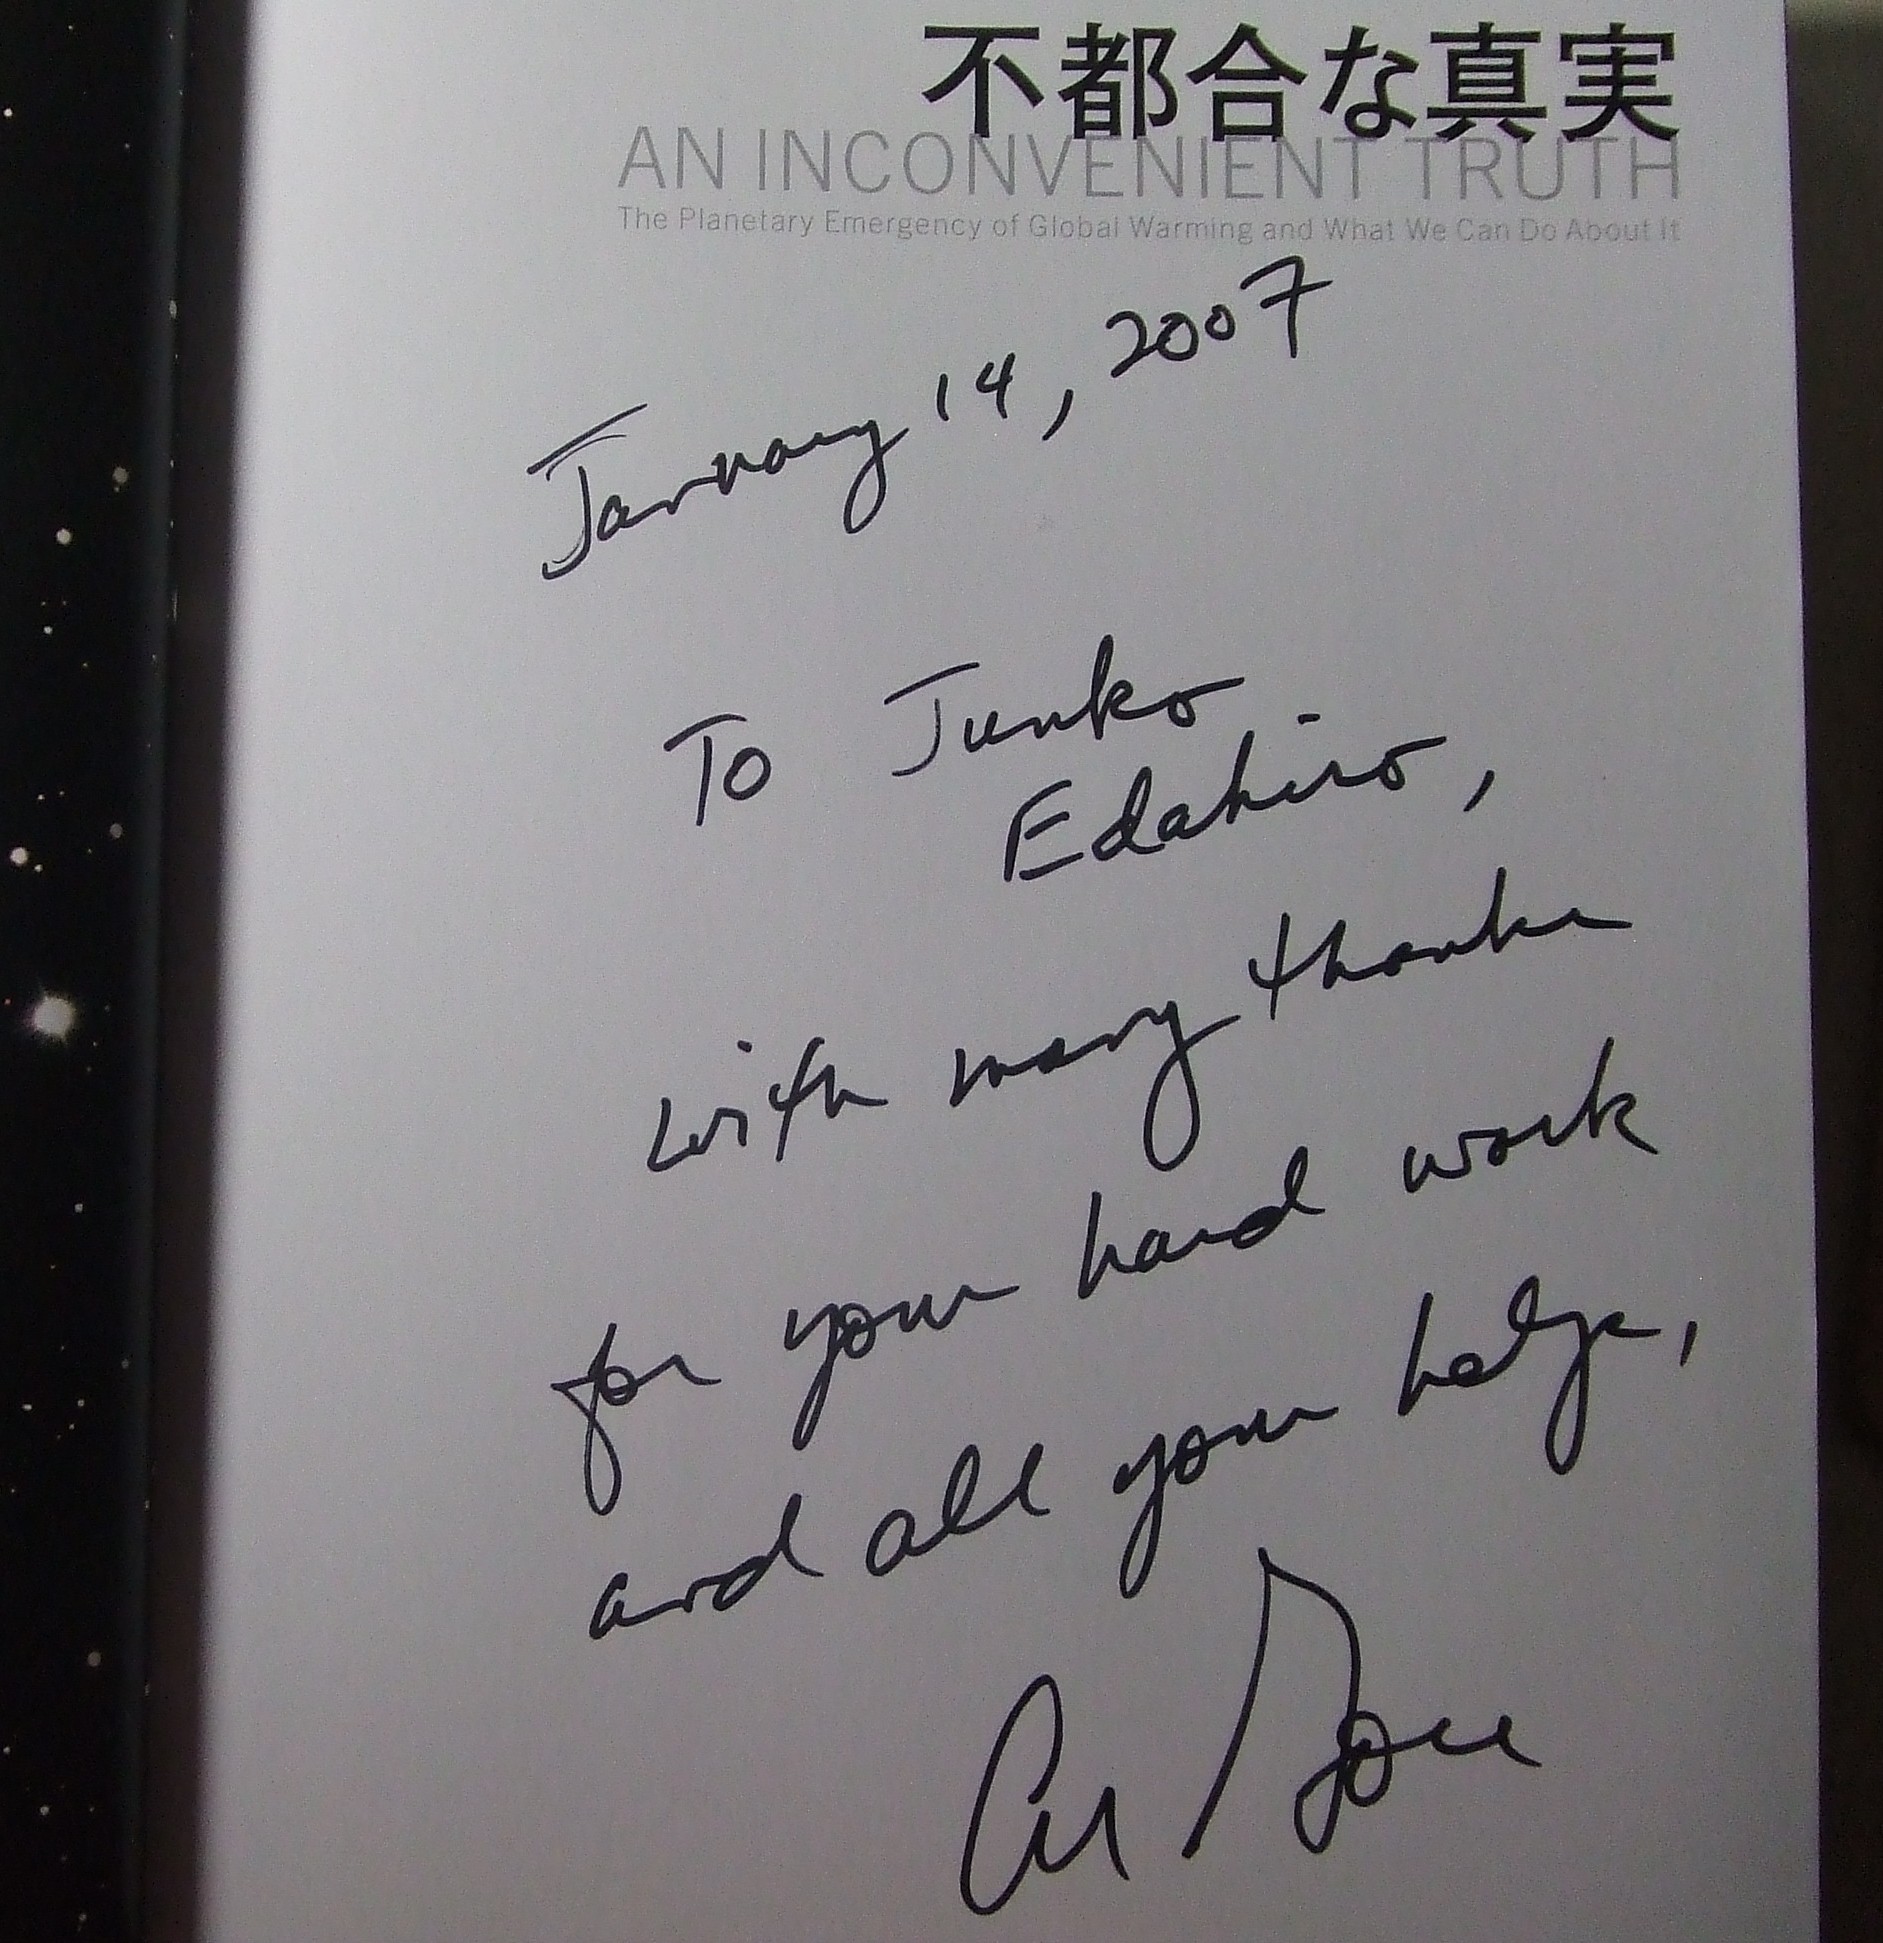 不都合な真実
AN INCONVENIENT TRUTH
The Planetary Emergency of Global Warming and What We Can Do About It
January 14, 2007
To Junko
Edahiro,
with many thanks
for your hard work
and all your help,
Al Gore